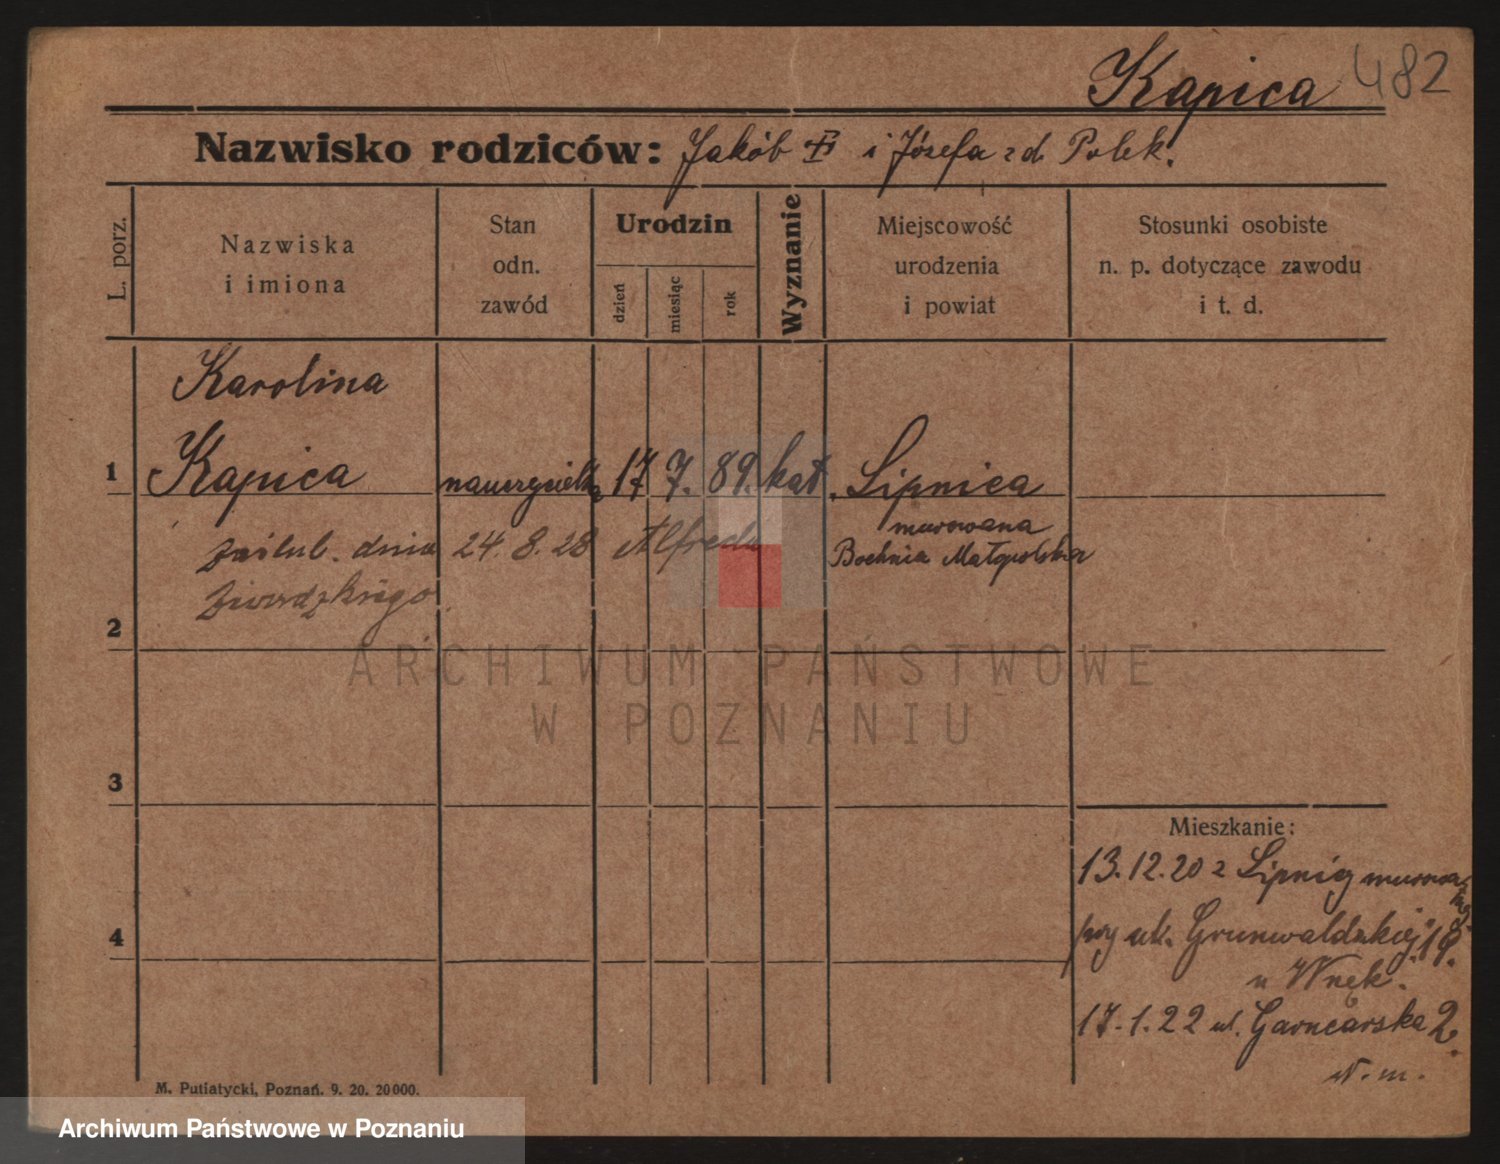 Kapica 482
Nazwisko rodziców: Jakób i Józefa z d. Polek.
L. porz.
Nazwiska
i imiona
Stan
odn.
zawód
Urodzin
dzień
miesiąc
rok
Wyznanie
Miejscowość
urodzenia
i powiat
Stosunki osobiste
n. p. dotyczące zawodu
i t. d.
Karolina
1 Kapica nauczycielka 17 7. 89. kat. Lipnica
murowana
zaślub. dnia 24. 8. 28 Alfreda Bochnia Małopolska
2
3
4
Mieszkanie:
13.12.20 z Lipnicy
przy uk. Grunwaldzkiej 18.
u Wnęk.
17.1.22 ul. Garncarska 2.
N. m.
M. Putiatycki, Poznań. 9. 20. 20000.
ARCHIWUM PAŃSTWOWE
W POZNANIU
Archiwum Państwowe w Poznaniu